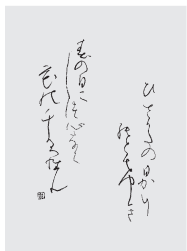 ひさかたの日かり
のとけき
春の日に
しつ心なく
花のちるらん